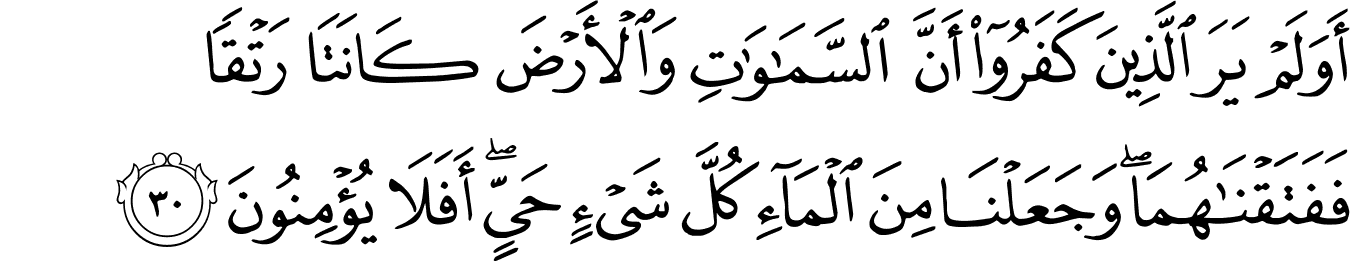 أَوَلَمۡ يَرَ ٱلَّذِينَ كَفَرُوٓاْ أَنَّ ٱلسَّمَٰوَٰتِ وَٱلۡأَرۡضَ كَانَتَا رَتۡقٗا
فَفَتَقۡنَٰهُمَاۖ وَجَعَلۡنَا مِنَ ٱلۡمَآءِ كُلَّ شَيۡءٍ حَيٍّۖ أَفَلَا يُؤۡمِنُونَ ٣٠